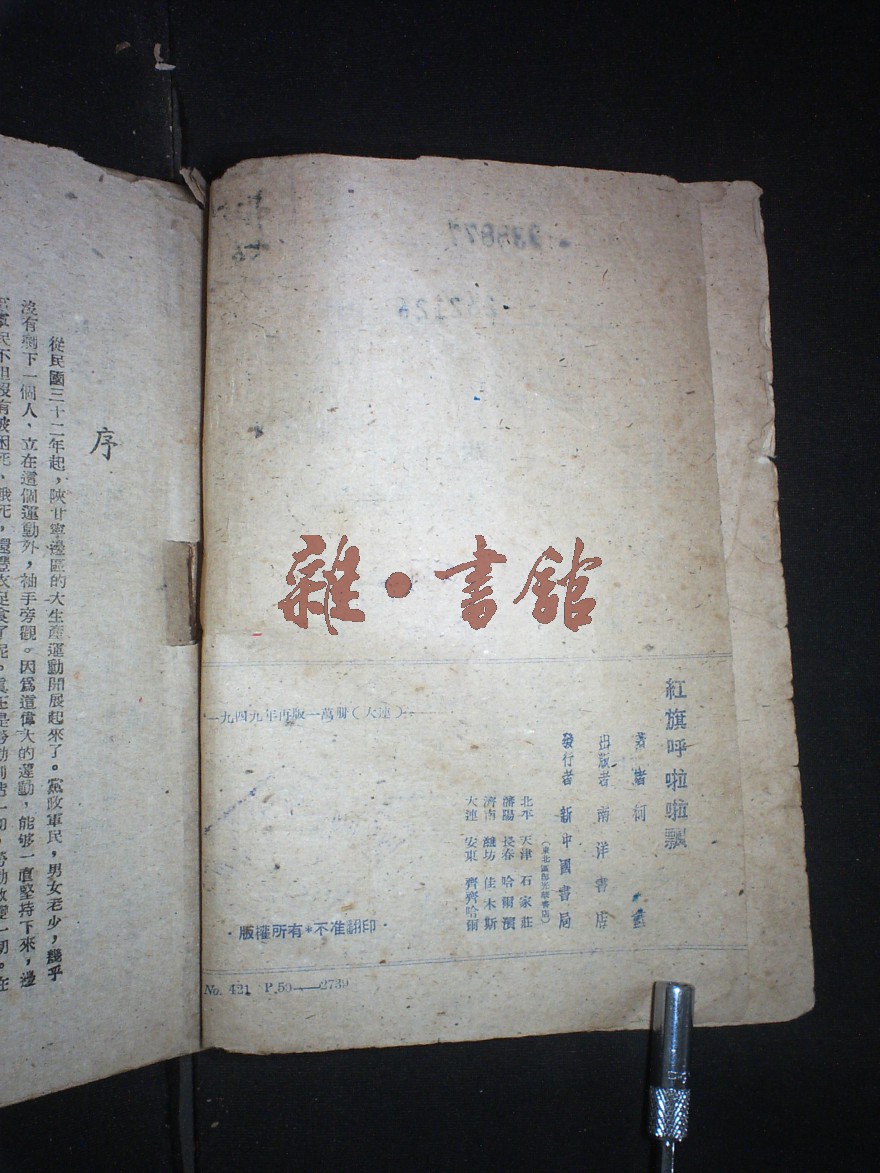 紅旗呼啦啦飄
著者 柯 藍
出版者 南洋書店
發行者 新中國書局
(東北區卽光華書店)
北平 天津 石家莊
瀋陽 長春 哈爾濱
濟南 濰坊 佳木斯
大連 安東 齊齊哈爾
一九四九年再版一萬册(大連)
·版權所有*不准翻印·
No. 421 P.50——2739
雜·書館
序
從民國三十二年起,陝甘寧邊區的大生產運動開展起來了。黨政軍民,男女老少,幾乎
沒有剩下一個人,立在這個運動外,袖手旁觀。因爲這偉大的運動,能够一直堅持下來,邊
軍民不但沒有被困死、餓死,還豐衣足食了呢。真正是勞動創造一切,勞動改變一切。在